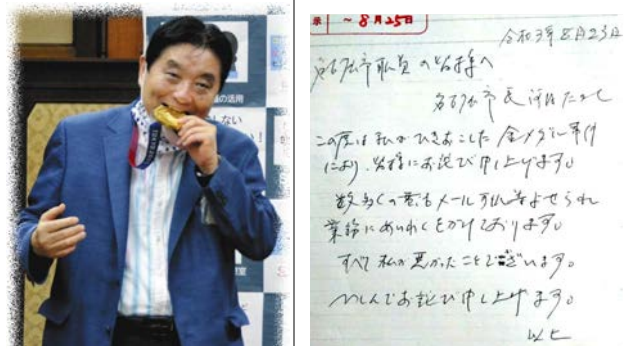 の活用
ない
示 ~8月25日
令和3年8月23日
名古屋市職員の皆様へ
名古屋市長 河村たかし
この度は私がひきおこした金メダル事件
により、皆様にお詫び申し上げます。
数多くの電話メール手紙等よせられ
業務にめいわくをかけております。
すべて私が悪かったことでございます。
つつしんでお詫び申し上げます。
以上